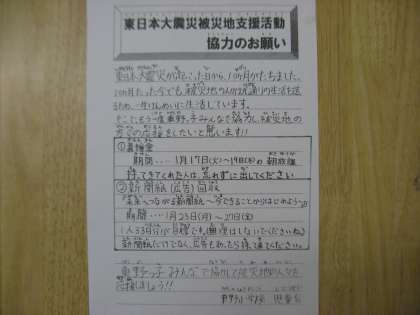 東日本大震災被災地支援活動
協力のお願い
東日本大震災が起こった日から、10ヶ月がたちました。
10ヶ月たった今でも被災地の人々は元通りの生活を送
るため、一生けんめいに生活しています。
そこで、もう一度東野っ子みんなで協力し、被災地の
方々の応援をしたいと思います!!
①義援金
期間・・・1月17日(火)~19日(木)の朝放課
持ってきてくれた人は、忘れずに出してください
②新聞紙(広告)回収
「未来へつながる新聞紙~今できることからはじめよう~」
期間・・・1月23日(月)~27日(金)
1人33日分が目標です(無理はしないでくださいね)
新聞紙だけでなく、広告もあったら持って来てください。
東野っ子みんなで協力して被災地の人々を
応援しましょう!!
児童会